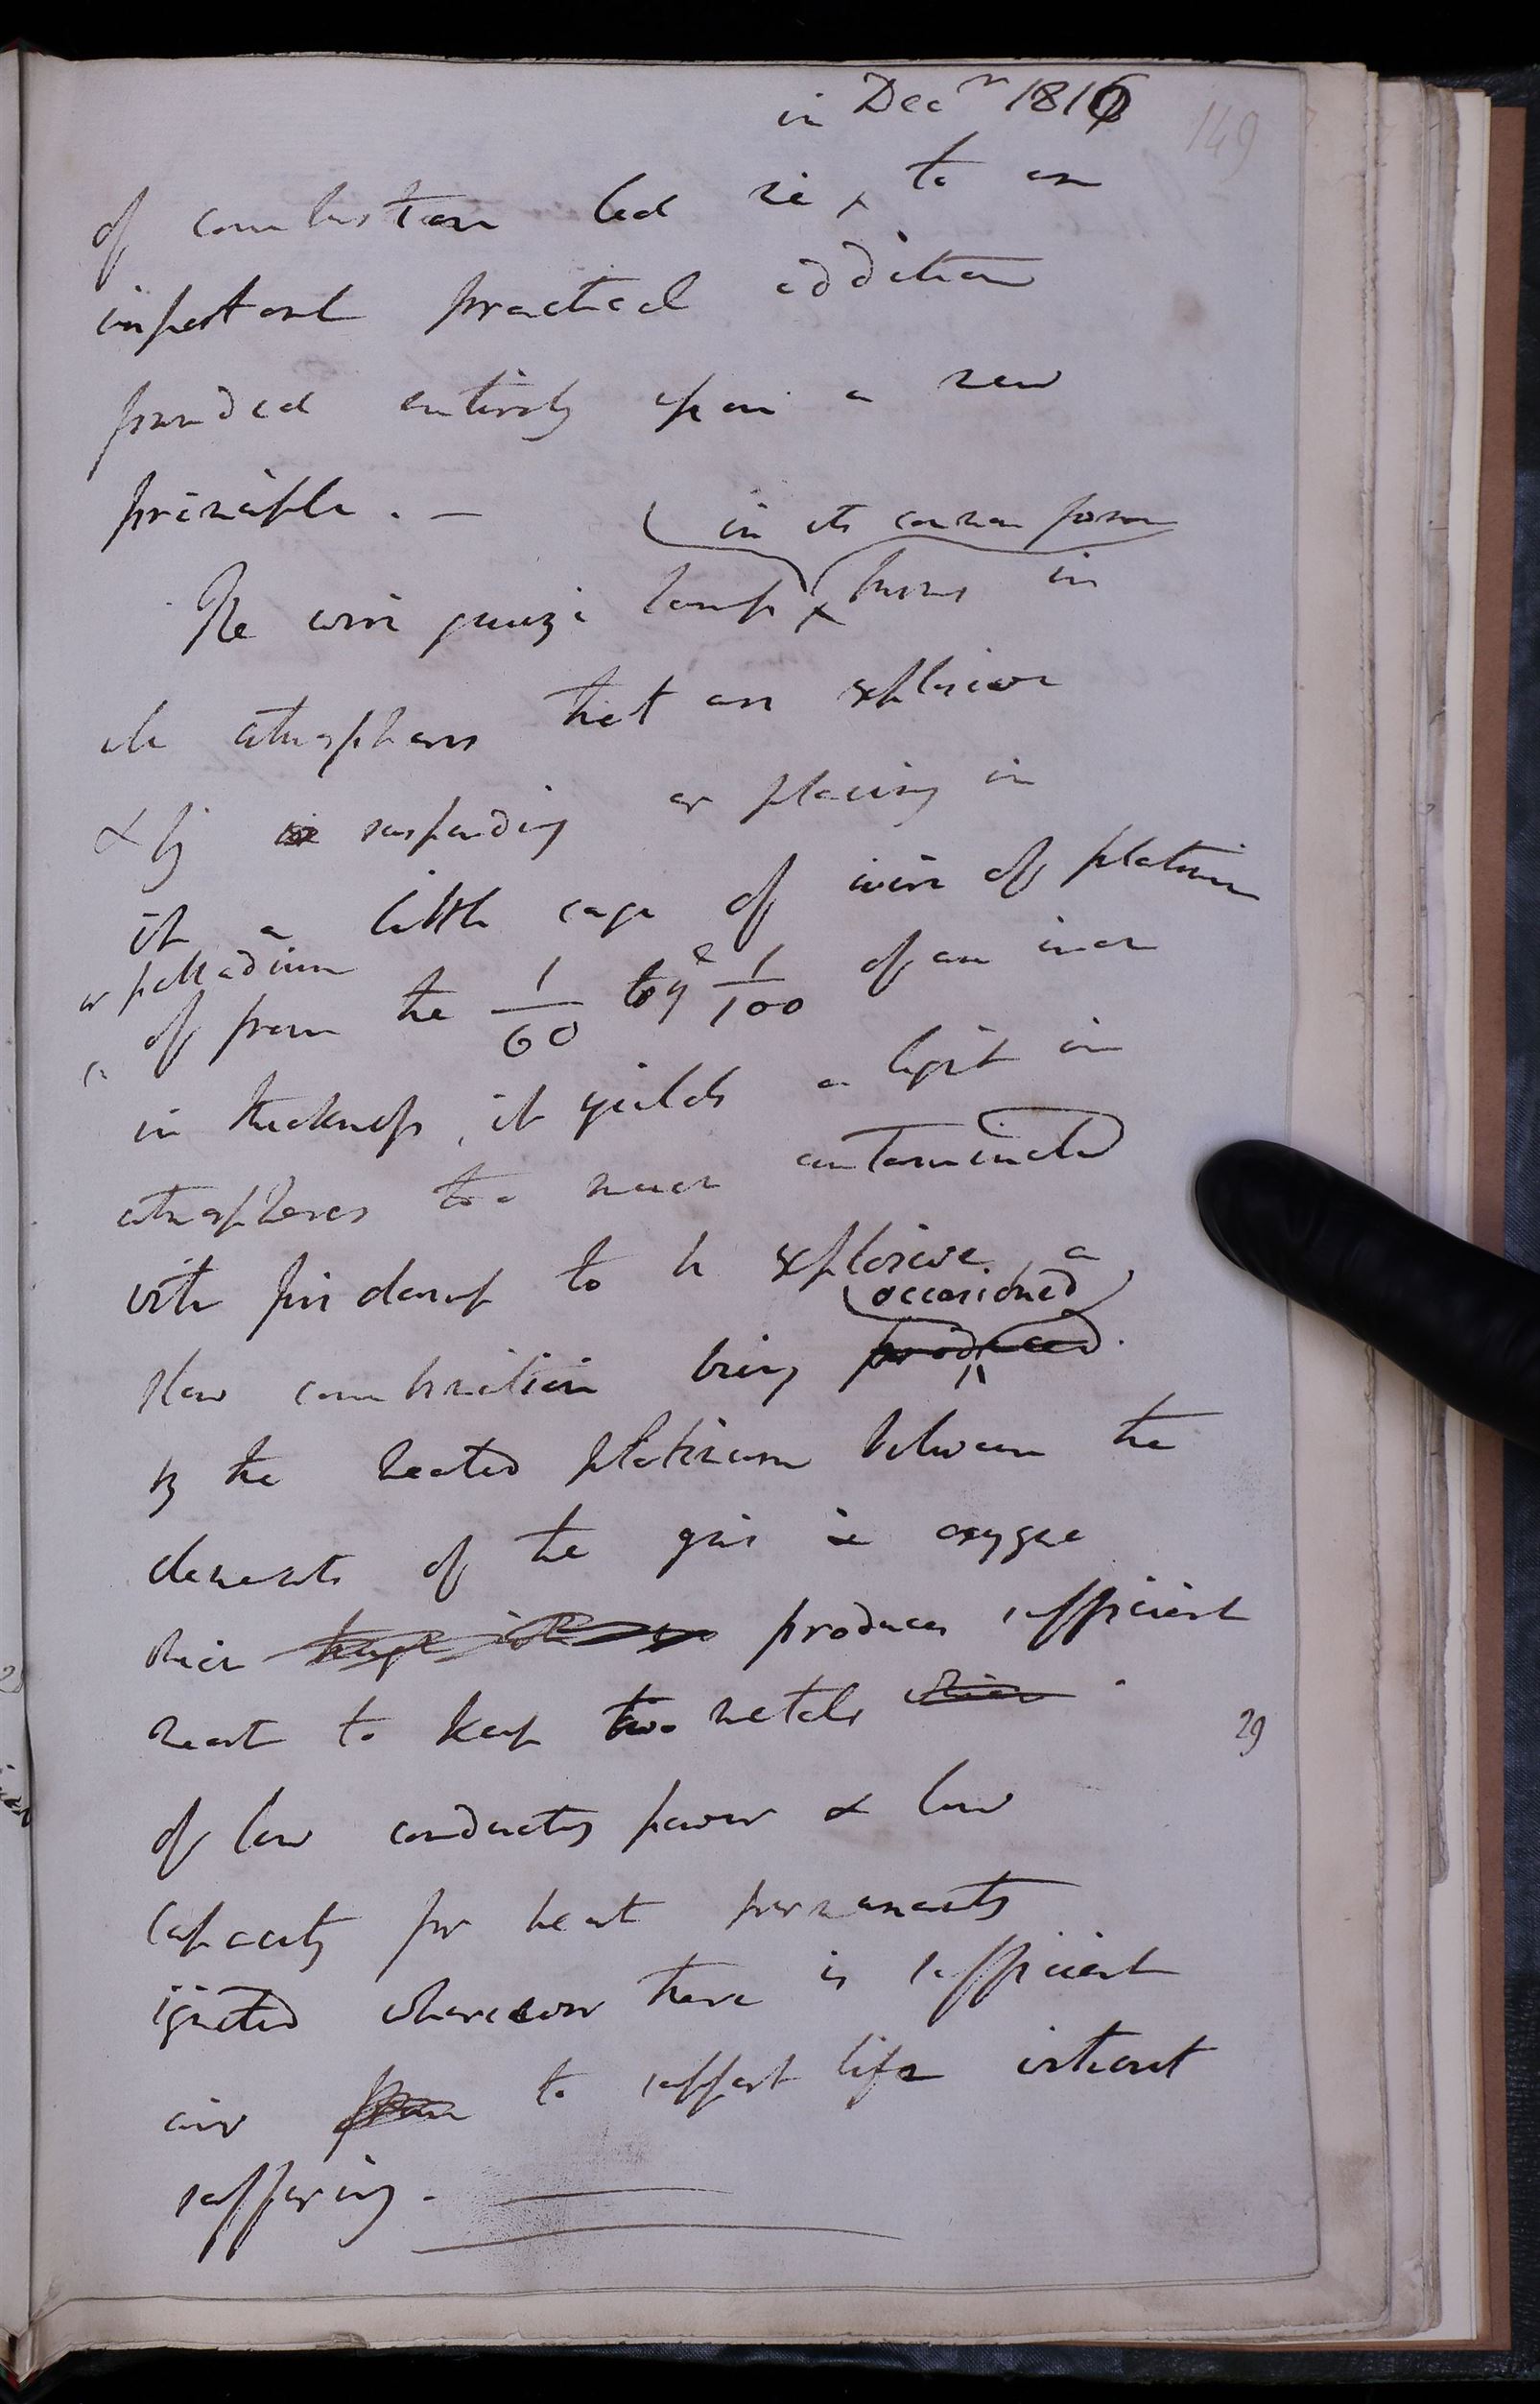 in Dec^r 1816
149
of combustion led me to an
important practical addition
founded entirely upon a new
principle. —
in its common form
The wire gauze lamp burns in
all atmospheres that are explosive
& by suspending or placing in
it a little cage of wire of platinum
or palladium
of from the 1/60 to y^e 1/100 of an inch
in thickness, it yields a light in
atmospheres too much contaminated
with fire damp to be explosive, a
occasioned
slow combustion being produced
by the heated platinum between the
elements of the gas & oxygene
which produces sufficient
heat to keep two metals which
of low conducting power & low
capacity for heat permanently
ignited whenever there is sufficient
29
air from to support life without
suffering. —